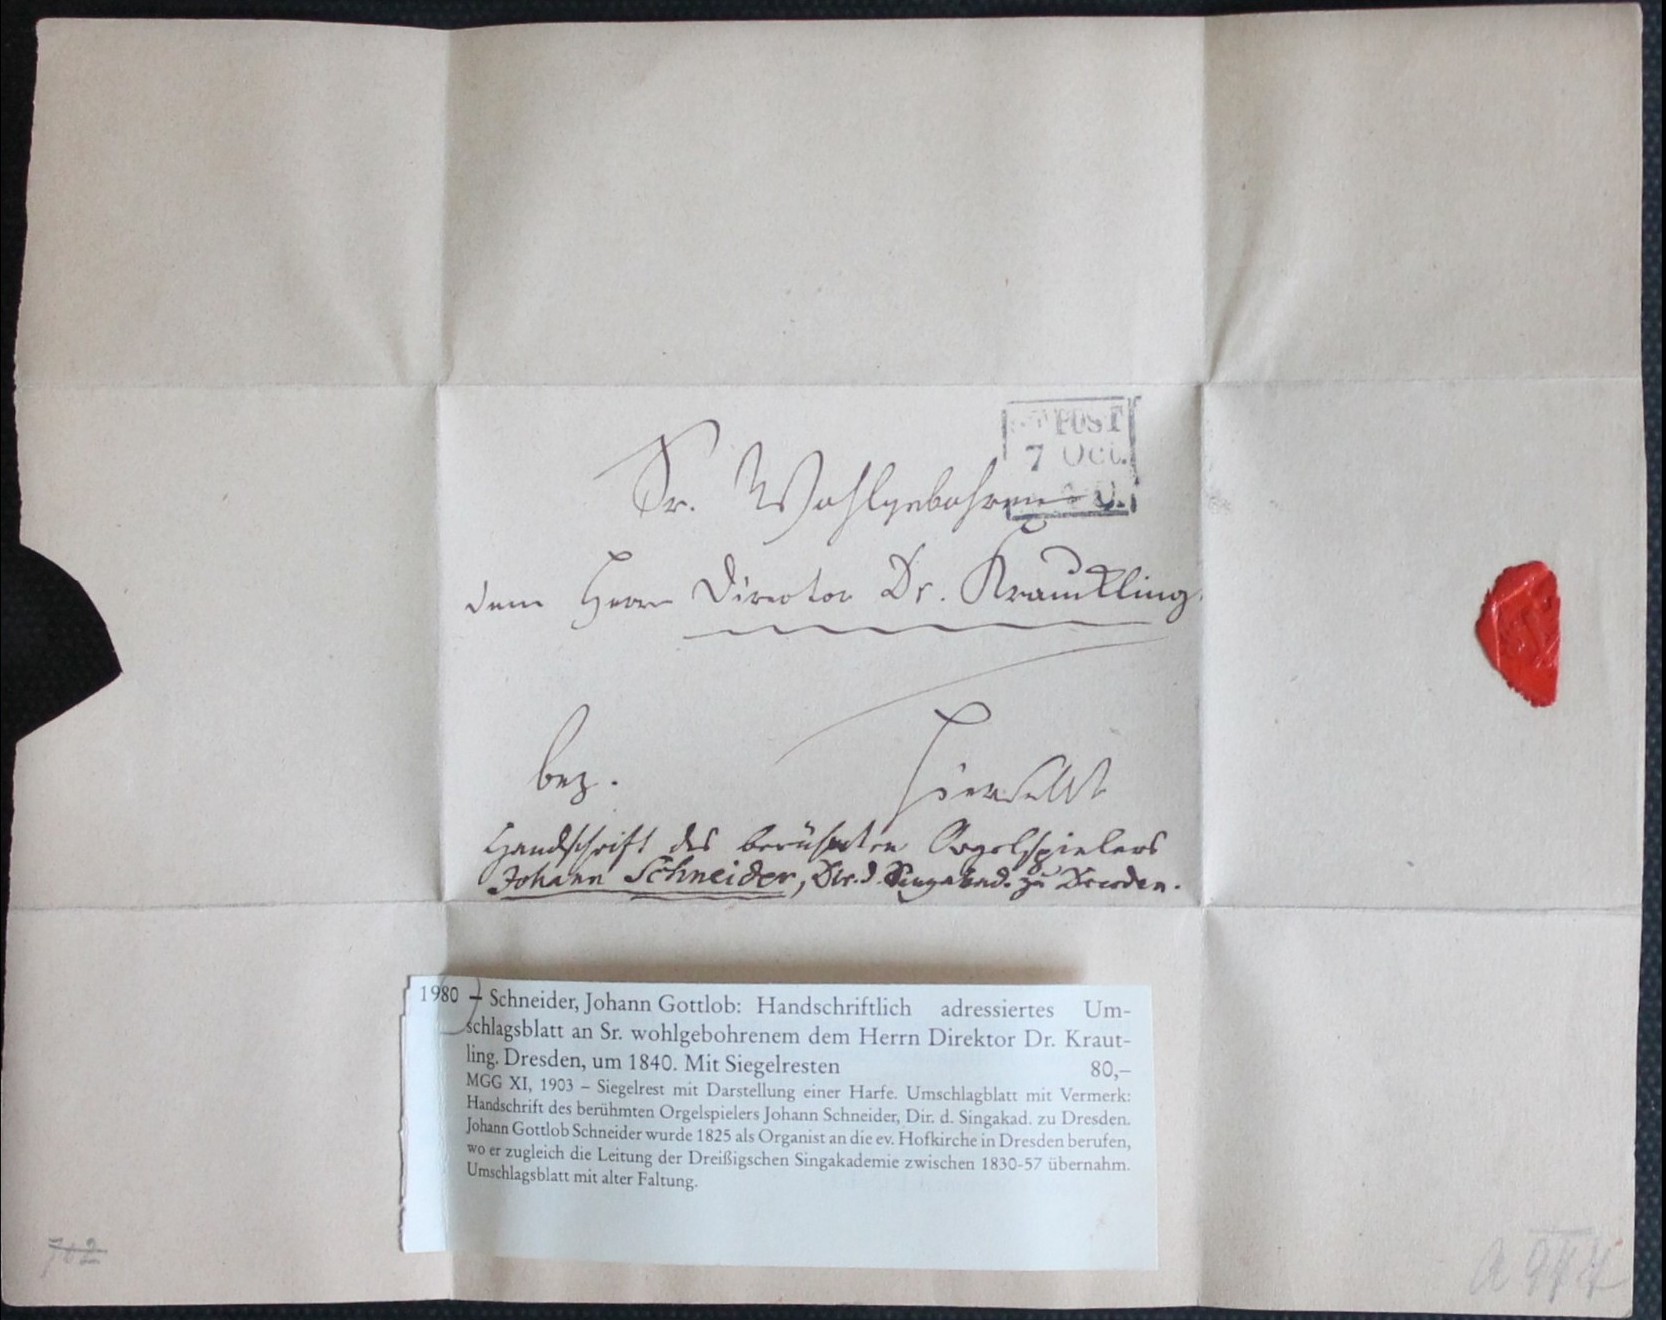 POST
7 Oct.
Sr. Wohlgebohren
dem Herrn Director Dr. Kraukling.
bez.
Hierselbst
Handschrift des berühmten Orgelspielers
Johann Schneider, Dir. d. Singakad. zu Dresden.
1980 – Schneider, Johann Gottlob: Handschriftlich adressiertes Um-
schlagsblatt an Sr. wohlgebohrenem dem Herrn Direktor Dr. Kraut-
ling. Dresden, um 1840. Mit Siegelresten 80,–
MGG XI, 1903 – Siegelrest mit Darstellung einer Harfe. Umschlagblatt mit Vermerk:
Handschrift des berühmten Orgelspielers Johann Schneider, Dir. d. Singakad. zu Dresden.
Johann Gottlob Schneider wurde 1825 als Organist an die ev. Hofkirche in Dresden berufen,
wo er zugleich die Leitung der Dreißigschen Singakademie zwischen 1830-57 übernahm.
Umschlagsblatt mit alter Faltung.
702